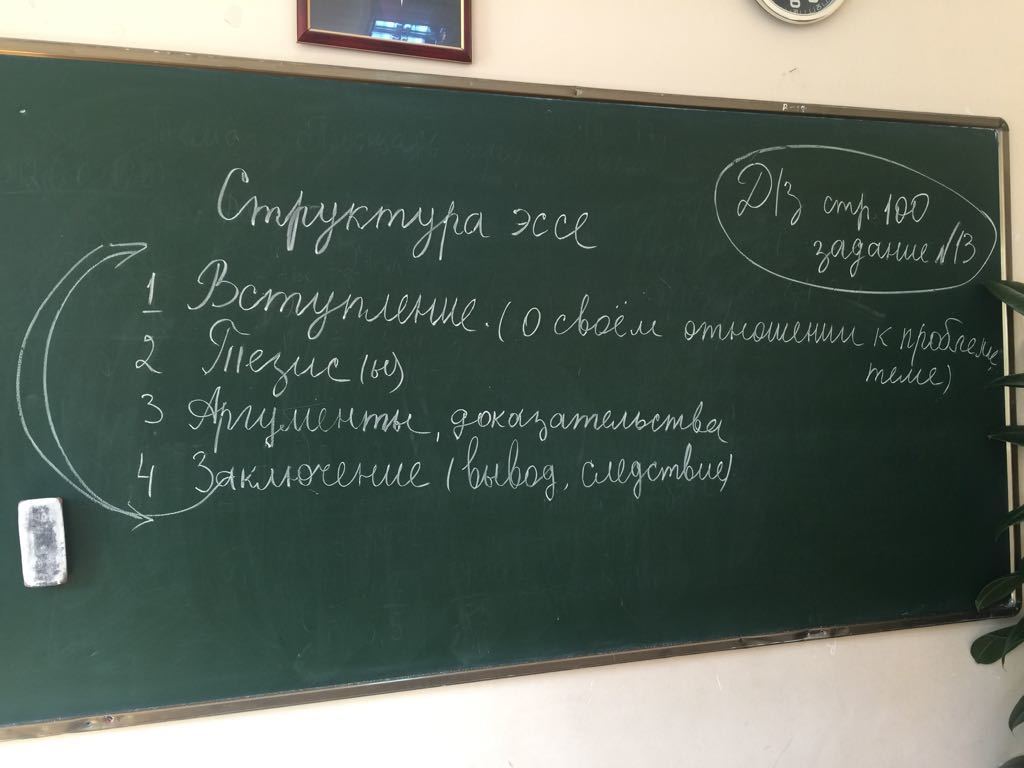 Структура эссе
Д/З стр. 100
задание №13
1 Вступление. (о своём отношении к проблеме,
теме)
2 Тезис(ы)
3 Аргументы, доказательства
4 Заключение (вывод, следствие)